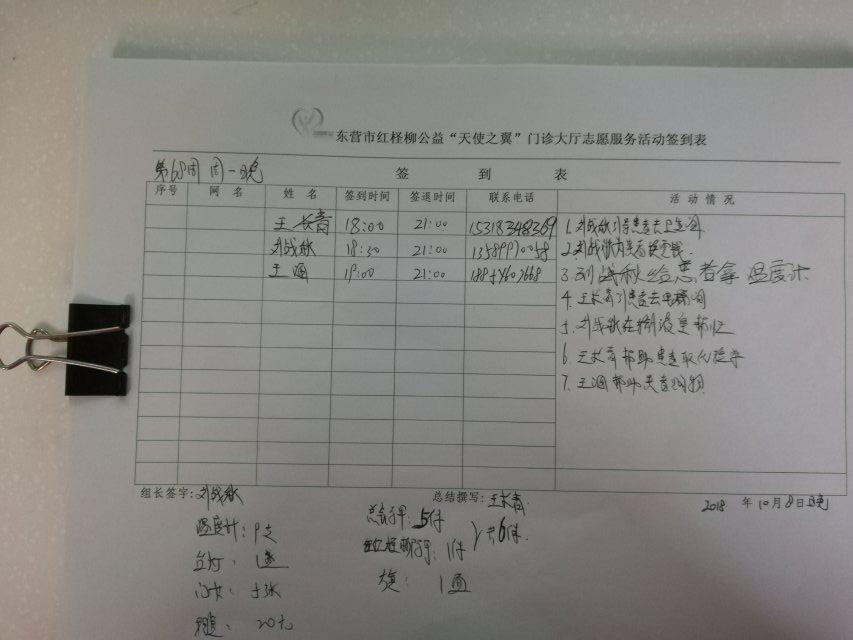 东营市红柽柳公益“天使之翼”门诊大厅志愿服务活动签到表
签 到 表
第68周 周一晚
序号 网名 姓名 签到时间 签退时间 联系电话 活动情况
王长青 18:00 21:00 15318348369
刘战秋 18:30 21:00
王通 19:00 21:00
1.刘战秋引导患者去卫生间
2.刘战秋为患者换零钱
3.刘战秋给患者拿温度计
4.王长青引患者去电梯间
5.刘战秋在
6.王长青帮助患者取化验单
7.王通帮助患者
组长签字:刘战秋
总结撰写:王长青
2018 年10月8日晚
温度计:9支
1
张
20元
5件
1件
共6件.
1面